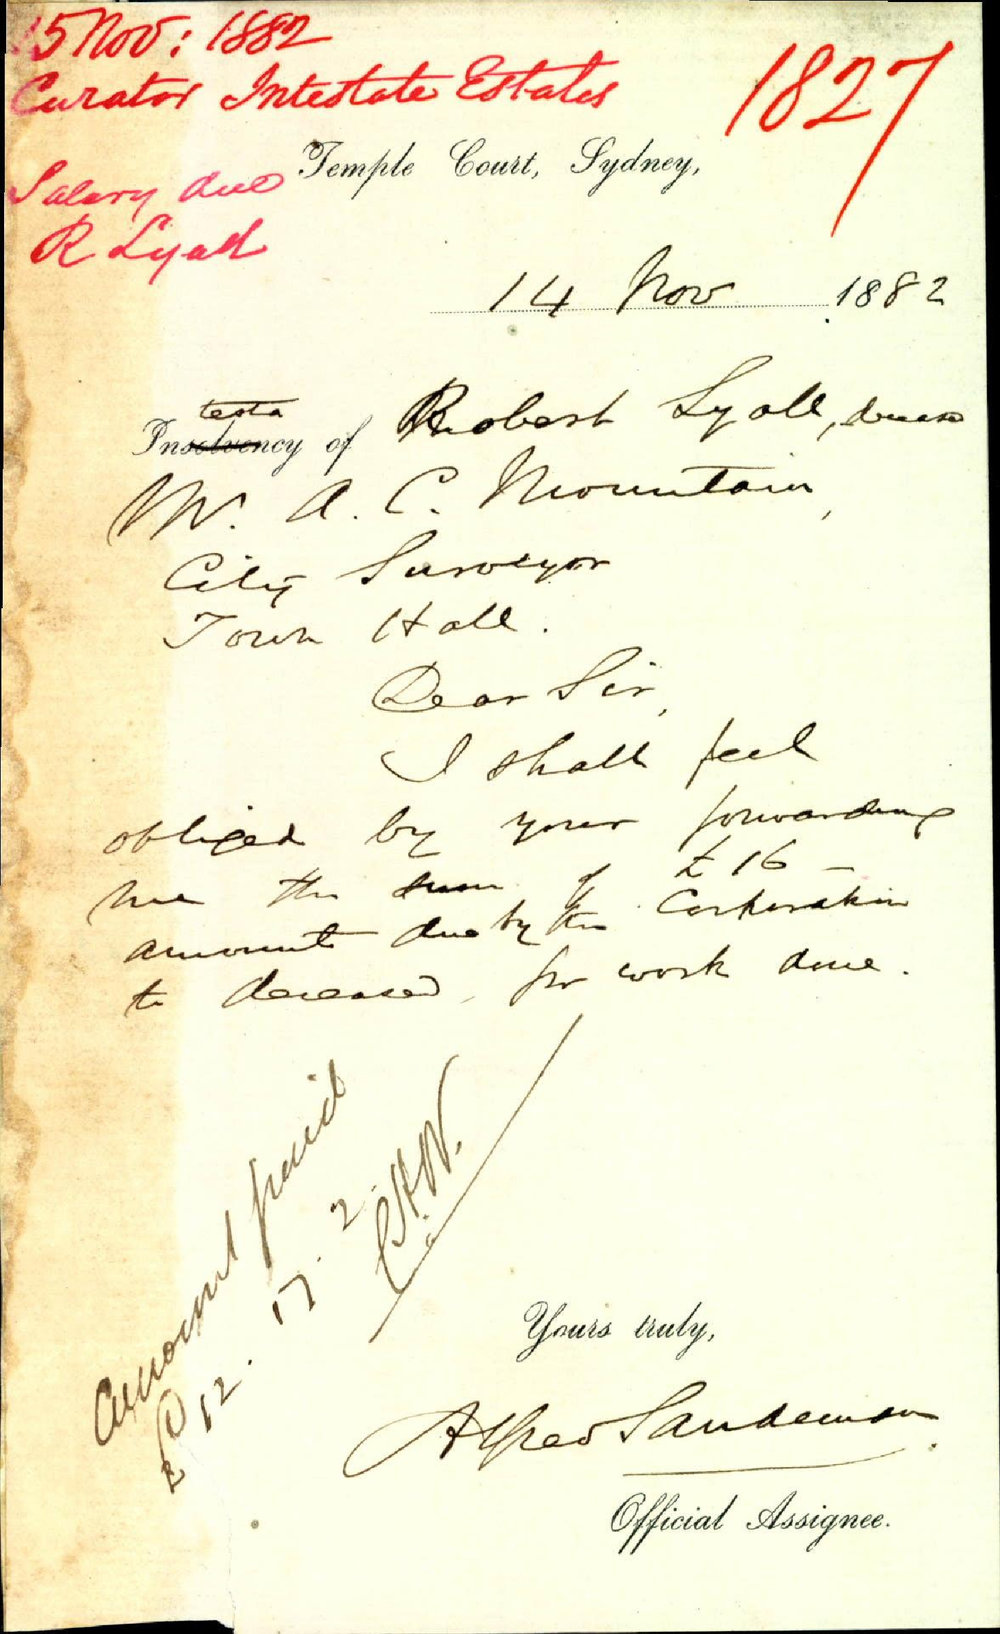 15 Nov: 1882
Curator Intestate Estates
1827
Salary due
R Lyall
Temple Court, Sydney,
14 Nov 1882
testa
Insolvency of Robert Lyall,
Mr. A. C. Mountain,
City Surveyor
Town Hall.
Dear Sir,
I shall feel
obliged by your forwarding
me the sum of £16 –
amount due by the Corporation
to deceased, for work done.
Amount paid
£12. 17. 2.
Yours truly,
Alfred Sandeman
Official Assignee.